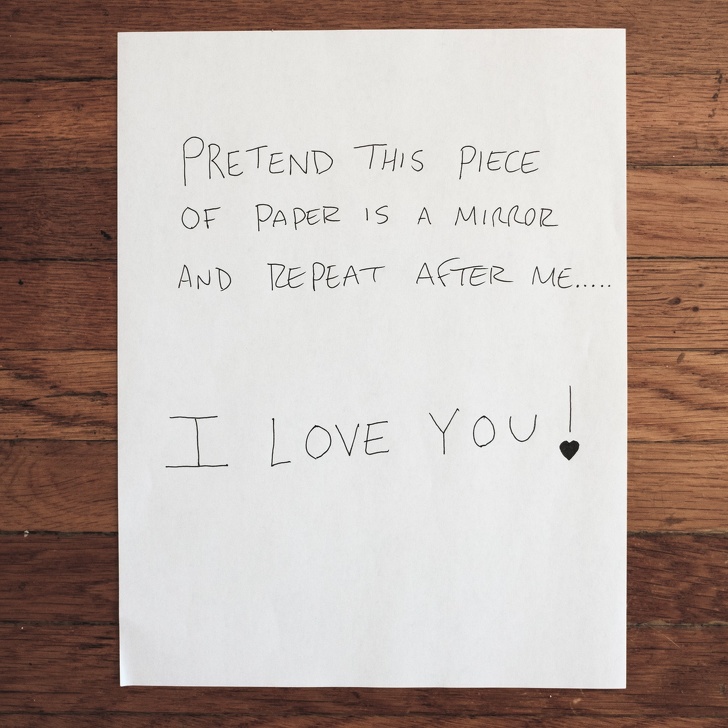 PRETEND THIS PIECE
OF PAPER IS A MIRROR
AND REPEAT AFTER ME.....
I LOVE YOU!